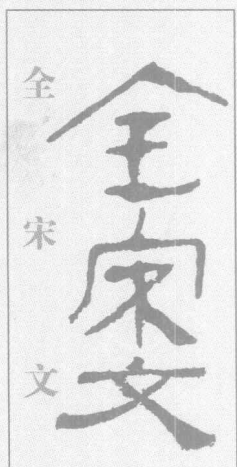 全宋文
全宋文